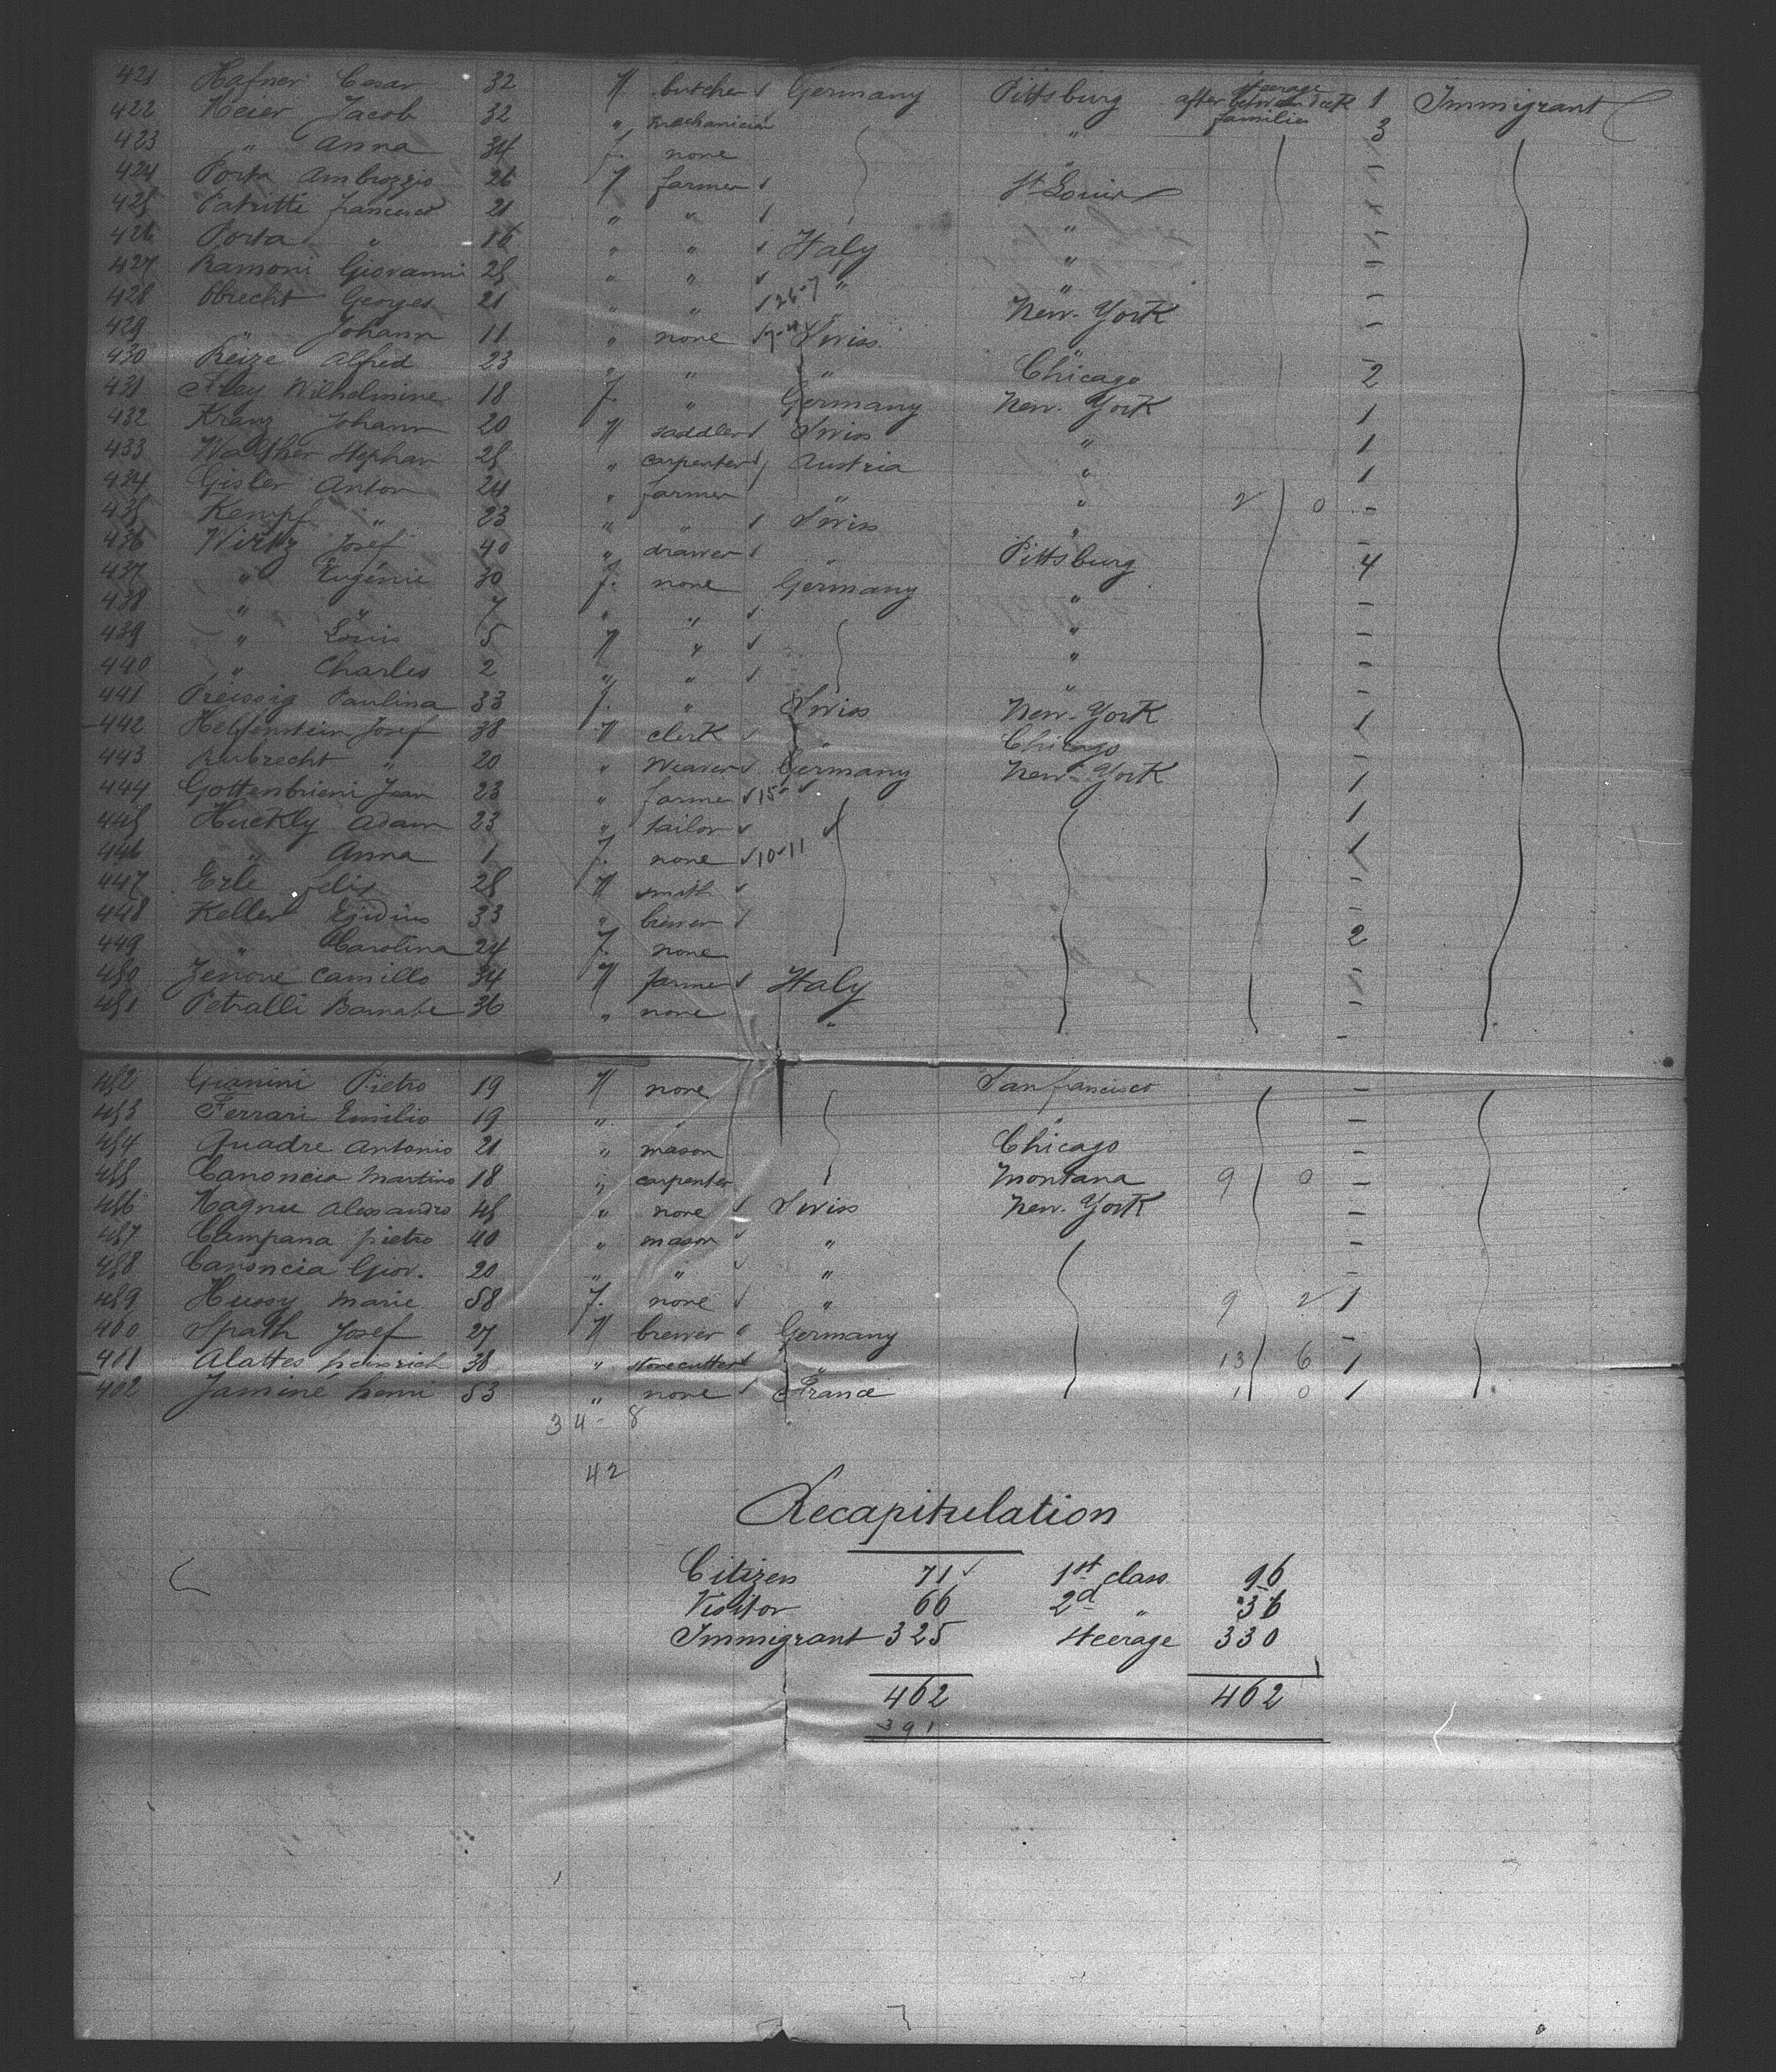 421 Hafner Cesar 32 M butcher ✓ Germany Pittsburg after steerage between deck families 1 Immigrant
422 Meier Jacob 32 " mechanician " 3
423 " Anna 34 f. none " -
424 Porta Ambroggio 26 M farmer ✓ St Louis -
425 Patritti francesco 21 " " ✓ " -
426 Porta " 16 " " ✓ Italy " -
427 Ramoni Giovanni 25 " " ✓ " " -
428 Obrecht Georges 21 " " ✓ 26-7 New-York -
429 " Johann 11 " none Swiss "
430 Reize Alfred 23 " " " Chicago 2
431 Frey Wilhelmine 18 f. " Germany New-York 1
432 Kranz Johann 20 M saddler ✓ Swiss " 1
433 Walther Stephan 25 " carpenter ✓ Austria " 1
434 Gisler Anton 24 " farmer " " 2 0 -
435 Kempf " 23 " " ✓ Swiss " -
436 Wirtz Josef 40 " drawer ✓ " Pittsburg 4
437 " Eugénie 30 f. none Germany " -
438 " " 7 " " ✓ " -
439 " Louis 5 M " ✓ " -
440 " Charles 2 " " ✓ " -
441 Preissig Paulina 33 f. " Swiss New-York 1
442 Helfenstein Josef 38 M clerk ✓ " Chicago -
443 Rubrecht " 20 " weaver ✓ Germany New-York 1
444 Gottenbrieni Jean 23 " farmer ✓ 15 1
445 Huckly Adam 23 " tailor ✓ 1
446 " Anna 1 f. none ✓ 10-11 -
447 Erle felix 28 M smith ✓ -
448 Keller Egidius 33 " brewer ✓ 2
449 " Carolina 24 f. none -
450 Zenove Camillo 34 M farmer ✓ Italy -
451 Petralli Barnabe 36 " none " -
452 Gianini Pietro 19 M none San francisco -
453 Ferrari Emilio 19 " " " -
454 Quadre Antonio 21 " mason Chicago -
455 Canoncia Martino 18 " carpenter Montana 9 0 -
456 Magnu Alessandro 45 " none ✓ Swiss New-York -
457 Campana pietro 40 " mason ✓ " -
458 Canoncia Giov. 20 " " ✓ " -
459 Hussy Marie 58 f. none ✓ " 9 2 1
460 Spath Josef 27 M brewer ✓ Germany -
461 Alattes heinrich 38 " stonecutter ✓ " 13 6 1
462 Jaminé henri 53 " none ✓ France 1 0 1
34 - 8
42
Recapitulation
Citizen 71 ✓ 1st class 96
Visitor 66 2d " 36
Immigrant 325 steerage 330
462 462
391